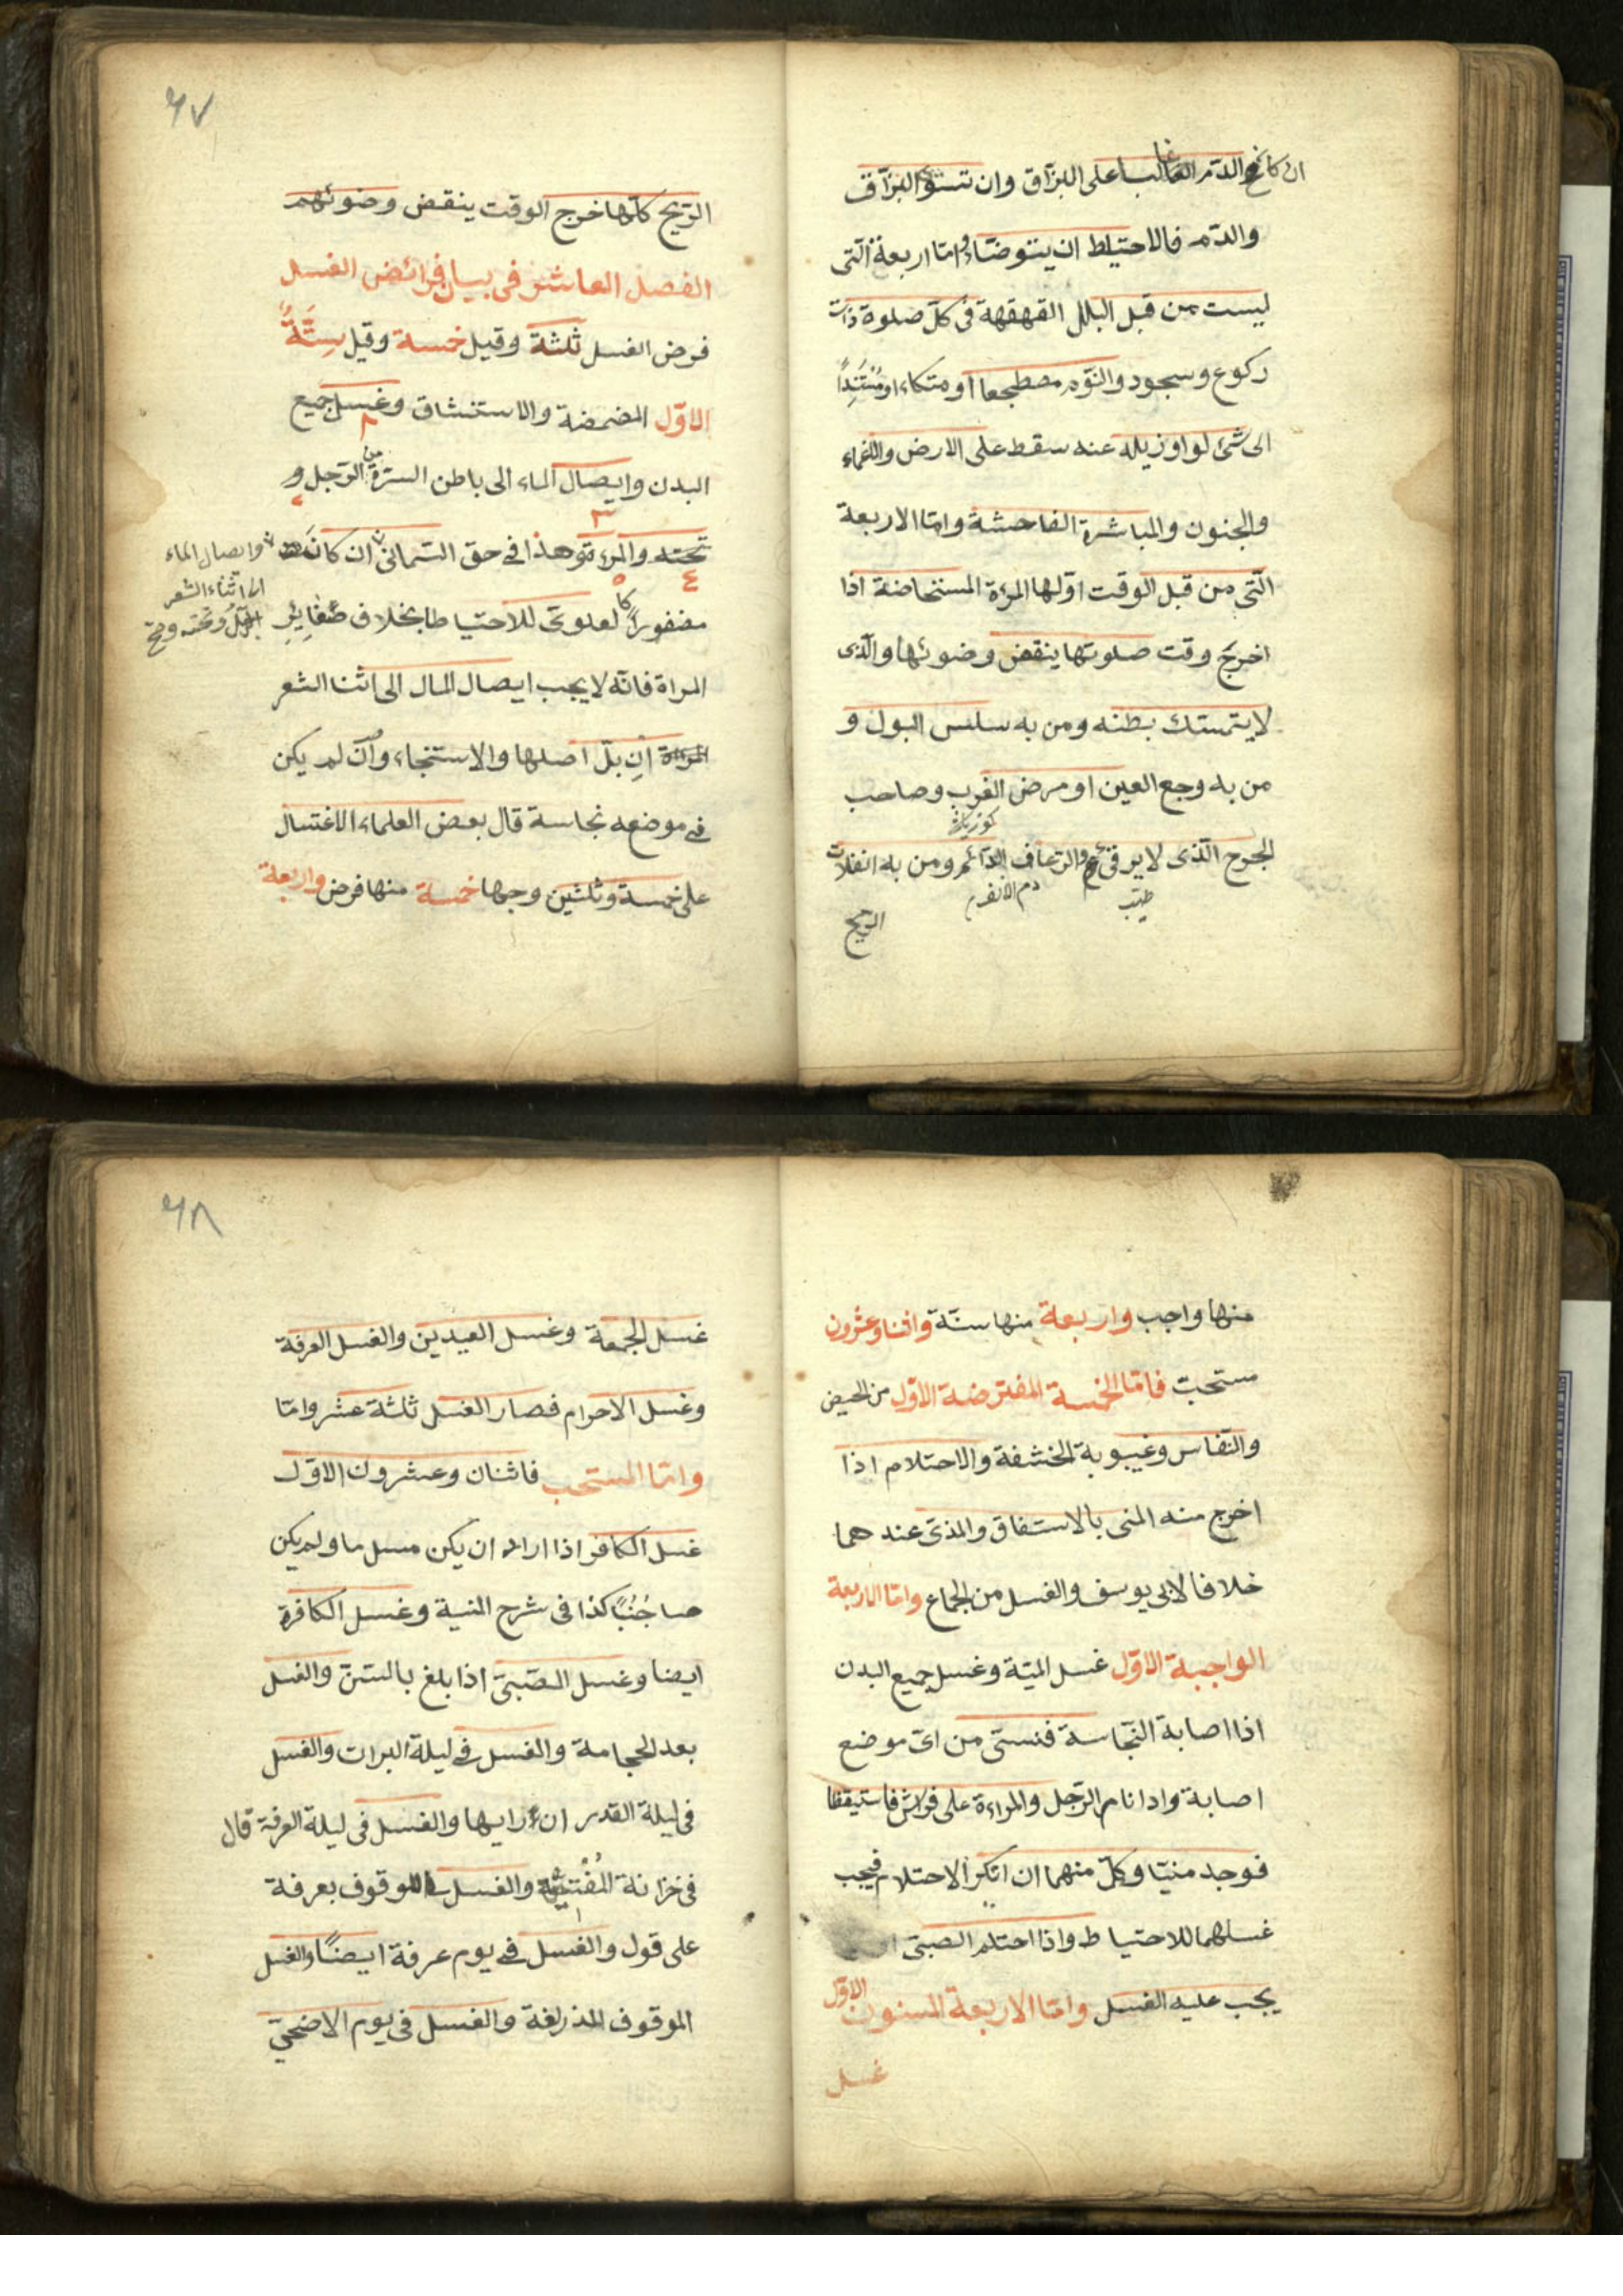 ان كان الدم الغالبا على البزاق وان تستوى البزاق
والدم فالاحتياط ان يتوضاء واما اربعة التى
ليست من قبل البلل القهقهة فى كل صلوة ذات
ركوع وسجود والنوم مصطجعا او متكاء او مستندا
الى شئ لو اوزيله عنه سقط على الارض والاغماء
والجنون والمباشرة الفاحشة واما الاربعة
التى من قبل الوقت اولها المرءة المستحاضة اذا
اخرج وقت صلوتها ينقض وضوئها والذى
لا يتمسك بطنه ومن به سلس البول و
من به وجع العين او مرض الغرب وصاحب
الجرح الذى لا يرقئ والرعاف الدائم ومن به انفلات
دم الانف
الريح
٦٧
الريح كلها خرج الوقت ينقض وضوئهم
الفصل العاشر فى بيان فرائض الغسل
فرض الغسل ثلثة وقيل خمسة وقيل ستة
الاول المضمضة والاستنشاق وغسل جميع
البدن وايصال الماء الى باطن السرة من الرجل و
تحته والمرءة وهذا فى حق الثمانى ان كان
وايصال الماء
الى اثناء الشعر
مضفورا كالعلوى للاحتياطا بخلاف ضفاير
المراة فانه لا يجب ايصال المال الى اثنا الشعر
المراة ان بل اصلها والاستنجاء وان لم يكن
فى موضعه نجاسة قال بعض العلماء الاغتسال
على خمسة وثلثين وجها خمسة منها فرض واربعة
منها واجب واربعة منها سنة واثنا وعشرون
مستحب فاما الخمسة المفترضة الاول من الحيض
والنفاس وغيبوبة الخشفة والاحتلام اذا
اخرج منه المنى بالاستفاق والمذى عند هما
خلافا لابى يوسف والغسل من الجماع واما الاربعة
الواجبة الاول غسل الميتة وغسل جميع البدن
اذا اصابة النجاسة فنسى من اى موضع
اصابة واذا نام الرجل والمراءة على فراش فاستيقظا
فوجد منيا وكل منهما ان انكر الاحتلام فيجب
غسلهما للاحتياط واذا احتلم الصبى
يجب عليه الغسل واما الاربعة المسنون الاول
غسل
٦٨
غسل الجمعة وغسل العيدين والغسل العرفة
وغسل الاحرام فصار الغسل ثلثة عشر واما
واما المستحب فاثنان وعشرون الاول
غسل الكافر اذا اراد ان يكن مسلما ولم يكن
صاجنبا كذا فى شرح المنية وغسل الكافرة
ايضا وغسل الصبى اذا بلغ بالسن والغسل
بعد الحجامة والغسل فى ليلة البرات والغسل
فى ليلة القدر ان رايها والغسل فى ليلة العرفة قال
فى خزانة المفتين والغسل للوقوف بعرفة
على قول والغسل فى يوم عرفة ايضا والغسل
الموقوف المذرلغة والغسل فى يوم الاضحى